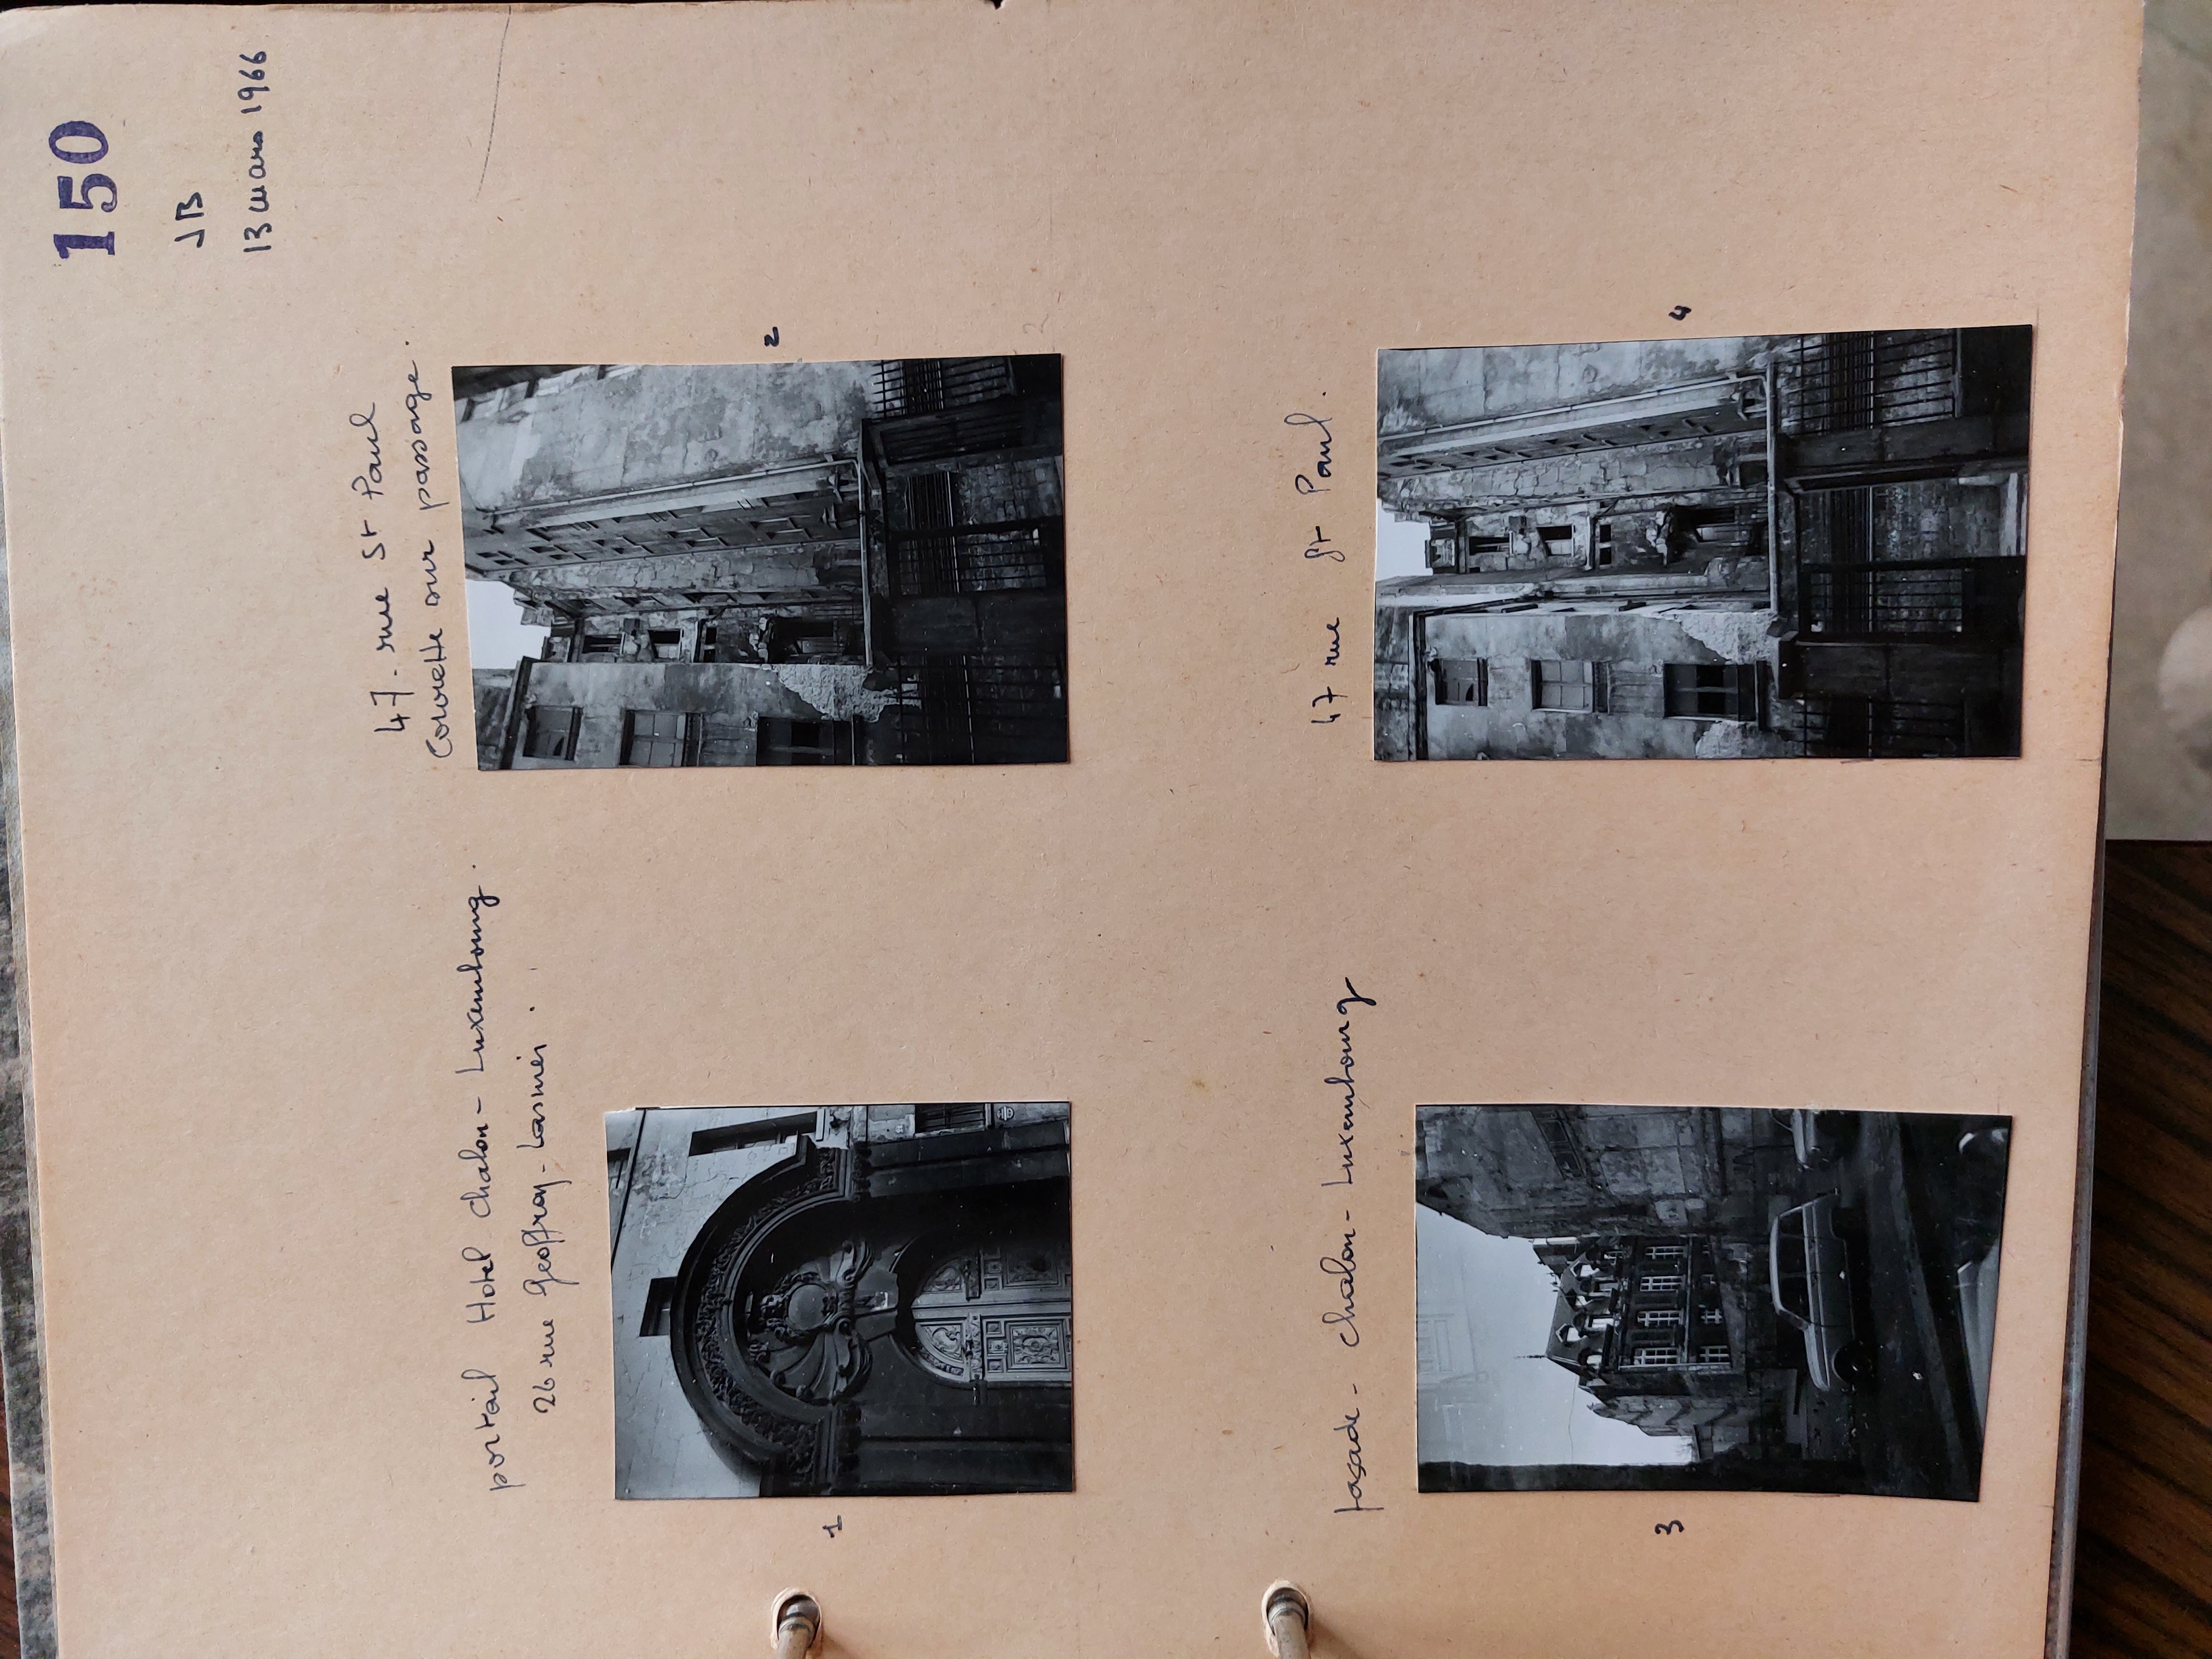 150
JB
13 mars 1966
portail Hotel Chalon - Luxembourg.
26 rue Geoffroy - Lasnier.
1
47. rue St Paul
Courette sur passage.
2
fasade - Chalon - Luxembourg
3
47 rue St Paul.
4